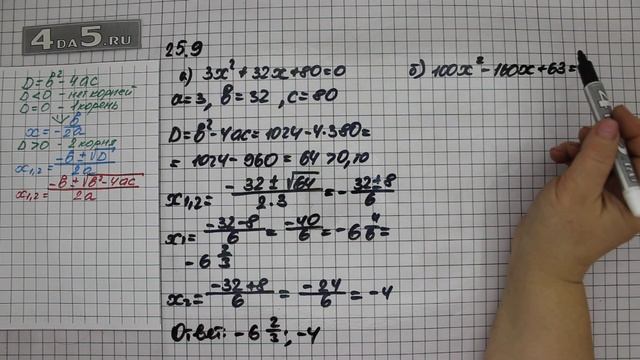 4DA5.RU
D=b²-4ac
D<0 - нет корней
D=0 - 1 корень
x=-b/2a
D>0 - 2 корня
x₁,₂=(-b±√D)/2a
x₁,₂=(-b±√b²-4ac)/2a
25.9
а) 3x²+32x+80=0
a=3, b=32, c=80
D=b²-4ac=1024-4·3·80=
=1024-960=64>0,
x₁,₂=(-32±√64)/2·3=-(32±8)/6
x₁=(-32-8)/6=-40/6=-6 4/6=
-6 2/3
x₂=(-32+8)/6=-24/6=-4
Ответ: -6 2/3; -4
б) 100x²-160x+63=